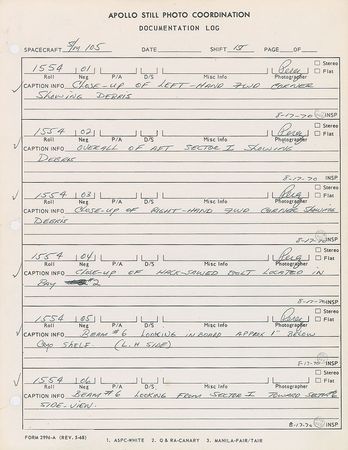 APOLLO STILL PHOTO COORDINATION
DOCUMENTATION LOG
SPACECRAFT S/M 105 DATE SHIFT 1ST PAGE OF
1554 01 Stereo
Roll Neg P/A D/S Misc Info Photographer Flat
CAPTION INFO CLOSE-UP OF LEFT-HAND FWD CORNER
SHOWING DEBRIS
8-17-70 INSP
1554 02 Stereo
Roll Neg P/A D/S Misc Info Photographer Flat
CAPTION INFO OVERALL OF AFT SECTOR I SHOWING
DEBRIS
8-17-70 INSP
1554 03 Stereo
Roll Neg P/A D/S Misc Info Photographer Flat
CAPTION INFO CLOSE-UP OF RIGHT-HAND FWD CORNER SHOWING
DEBRIS
8-17-70 INSP
1554 04 Stereo
Roll Neg P/A D/S Misc Info Photographer Flat
CAPTION INFO CLOSE-UP OF HACK-SAWED BOLT LOCATED IN
BAY #2
8-17-70 INSP
1554 05 Stereo
Roll Neg P/A D/S Misc Info Photographer Flat
CAPTION INFO BEAM #6 LOOKING INBOARD APPROX 1" BELOW
CRYO SHELF. (L.H SIDE)
8-17-70 INSP
1554 06 Stereo
Roll Neg P/A D/S Misc Info Photographer Flat
CAPTION INFO BEAM #6 LOOKING FROM SECTOR I TOWARD SECTOR 6
SIDE-VIEW.
8-17-70 INSP
FORM 2994-A (REV. 5-68) 1. ASPC-WHITE 2. Q & RA-CANARY 3. MANILA-FAIR/TAIR